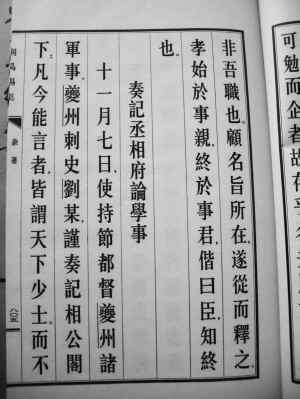 可勉而企者故
非吾職也。顧名旨所在。遂從而釋之。
孝始於事親。終於事君。偕曰臣。知終
也。
奏記丞相府論學事
十一月七日。使持節都督夔州諸
軍事。夔州刺史劉某謹奏記相公閣
下。凡今能言者。皆謂天下少士。而不